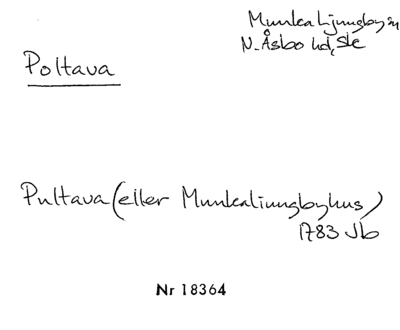 Munka Ljungby sn
N. Åsbo hd, Ske
Poltava
Pultava (eller Munkaliungbyhus)
1783 Jb
Nr 18364